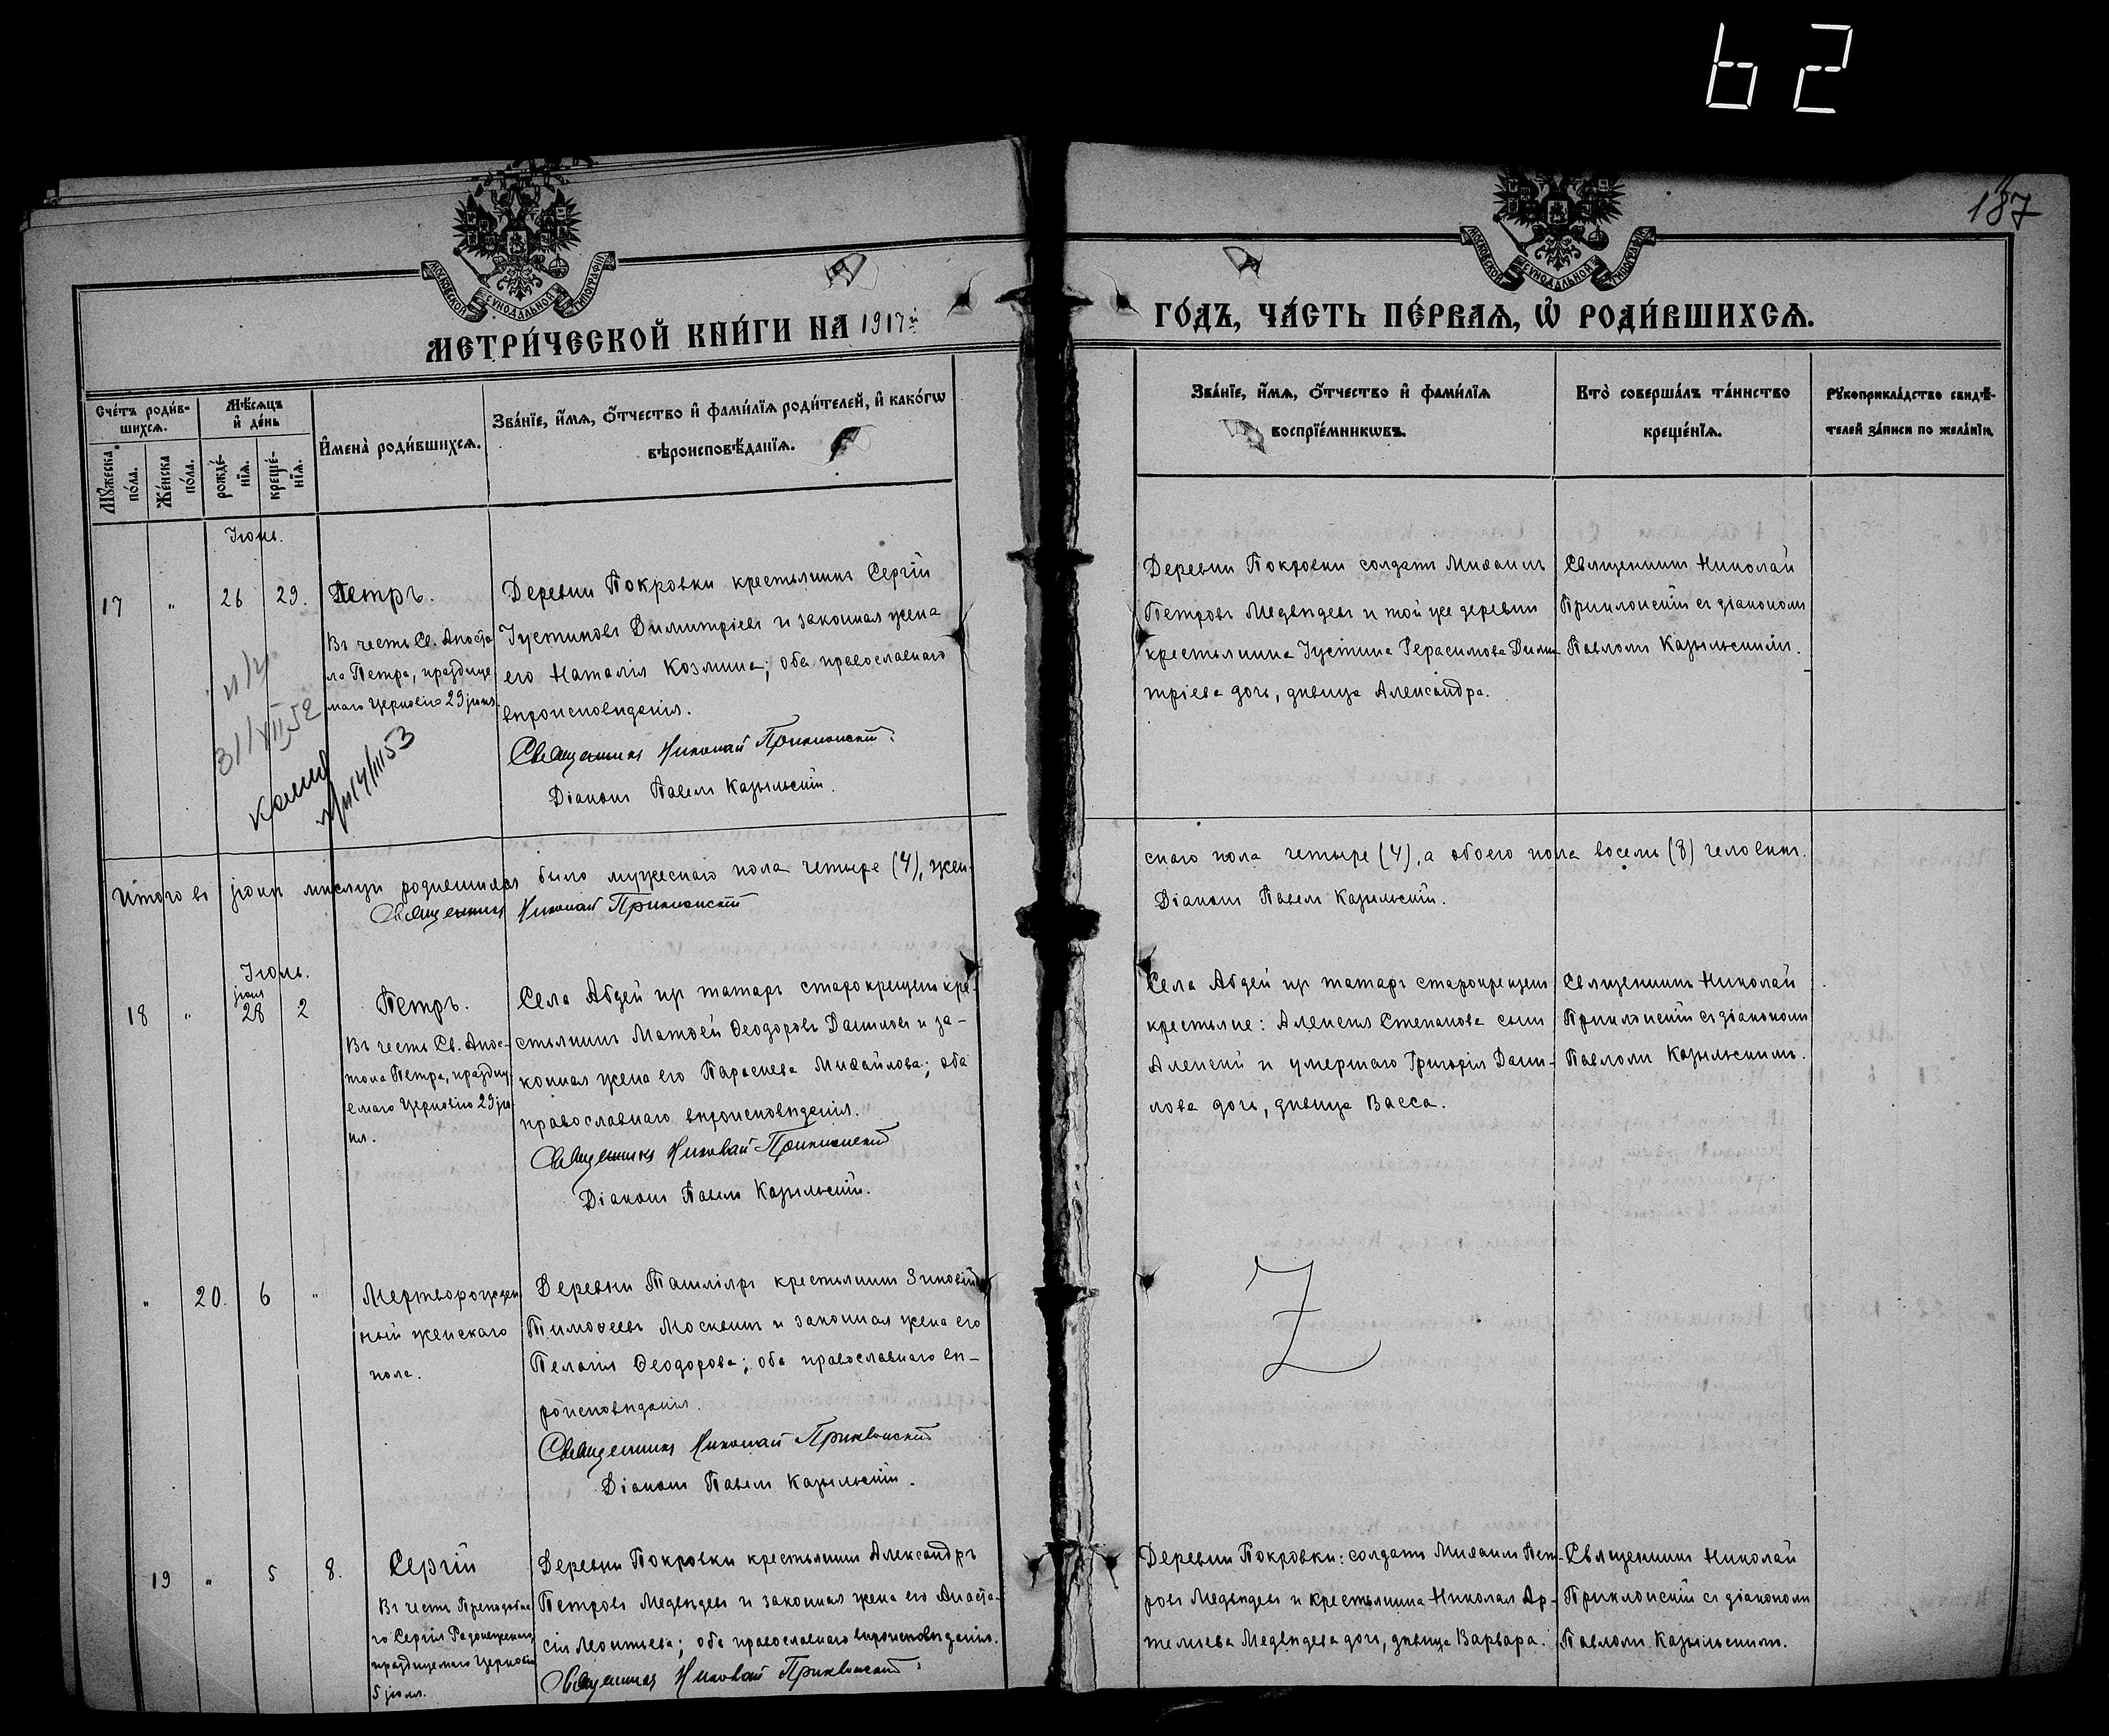 62
187
МОСКОВСКОЙ СѴНОДАЛЬНОЙ ТИПОГРАФІИ
МОСКОВСКОЙ СѴНОДАЛЬНОЙ ТИПОГРАФІИ
МЕТРИ́ЧЕСКОЙ КНИ́ГИ НА 1917й
ГО́ДЪ, ЧА́СТЬ ПЕ́РВАЯ, Ѽ РОДИ́ВШИХСѦ.
Сче́тъ роди́в-
шихсѧ.
Мꙋ́жеска по́ла.
Же́нска по́ла.
Мѣ́сѧцъ
и҆ де́нь
рожде́-
нїѧ.
креще́-
нїѧ.
И҆мена̀ роди́вшихсѧ.
Зва́нїе, и҆́мѧ, ѻ҆́тчество и҆ фами́лїѧ роди́телей, и҆ како́гѡ
вѣроисповѣ́данїѧ.
Зва́нїе, и҆́мѧ, ѻ҆́тчество и҆ фами́лїѧ
воспрїе́мникѡвъ.
Кто̀ соверша́лъ та́инство
креще́нїѧ.
Рꙋкоприкла́дство свидѣ́-
телей за́писи по жела́нїю.
Іюнь.
17 " 26 29. Петръ.
Въ честь Св. Апосто
ла Петра, празднуе
маго Церковію 29 іюня.
31/VII 52
14/III 53
Деревни Покровки крестьянинъ Сергій
Іустиновъ Димитріевъ и законная жена
его Наталія Козмина; оба православнаго
вѣроисповѣданія.
Священникъ Николай Приклонскій.
Діаконъ Павелъ Казыльскій.
Деревни Покровки солдатъ Михаилъ
Петровъ Медвѣдевъ и той же деревни
крестьянина Іустина Герасимова Дими
тріева дочь, дѣвица Александра.
Священникъ Николай
Приклонскій съ діакономъ
Павломъ Казыльскимъ.
Итого въ іюнѣ мѣсяцѣ родившихся было мужескаго пола четыре (4), жен-
Священникъ Николай Приклонскій
скаго пола четыре (4), а обоего пола восемь (8) человѣкъ.
Діаконъ Павелъ Казыльскій.
Іюль.
18 " іюня 28 2 Петръ.
Въ честь Св. Апос-
тола Петра, празднуе
емаго Церковію 29 ію-
ня.
Села Абдей изъ татаръ старокрещенъ кре-
стьянинъ Матѳей Ѳеодоровъ Даниловъ и за-
конная жена его Параскева Михайлова; оба
православнаго вѣроисповѣданія.
Священникъ Николай Приклонскій
Діаконъ Павелъ Казыльскій.
Села Абдей изъ татаръ старокрещенъ
крестьяне: Алексѣя Степанова сынъ
Алексій и умершаго Григорія Дани-
лова дочь, дѣвица Васса.
Священникъ Николай
Приклонскій съ діакономъ
Павломъ Казыльскимъ.
" 20. 6 " Мертворожден
ный женскаго
пола.
Деревни Ташляръ крестьянинъ Зиновій
Тимоѳеевъ Москвинъ и законная жена его
Пелагія Ѳеодорова; оба православнаго вѣ-
роисповѣданія.
Священникъ Николай Приклонскій
Діаконъ Павелъ Казыльскій.
Z
19 " 5 8. Сергій
Въ честь Преподобна
го Сергія Радонежскаго
празднуемаго Церковію
5 іюля.
Деревни Покровки крестьянинъ Александръ
Петровъ Медвѣдевъ и законная жена его Анаста-
сія Леонтьева; оба православнаго вѣроисповѣданія.
Священникъ Николай Приклонскій
Деревни Покровки: солдатъ Михаилъ Пет-
ровъ Медвѣдевъ и крестьянина Николая Ар-
темьева Медвѣдева дочь, дѣвица Варвара.
Священникъ Николай
Приклонскій съ діакономъ
Павломъ Казыльскимъ.